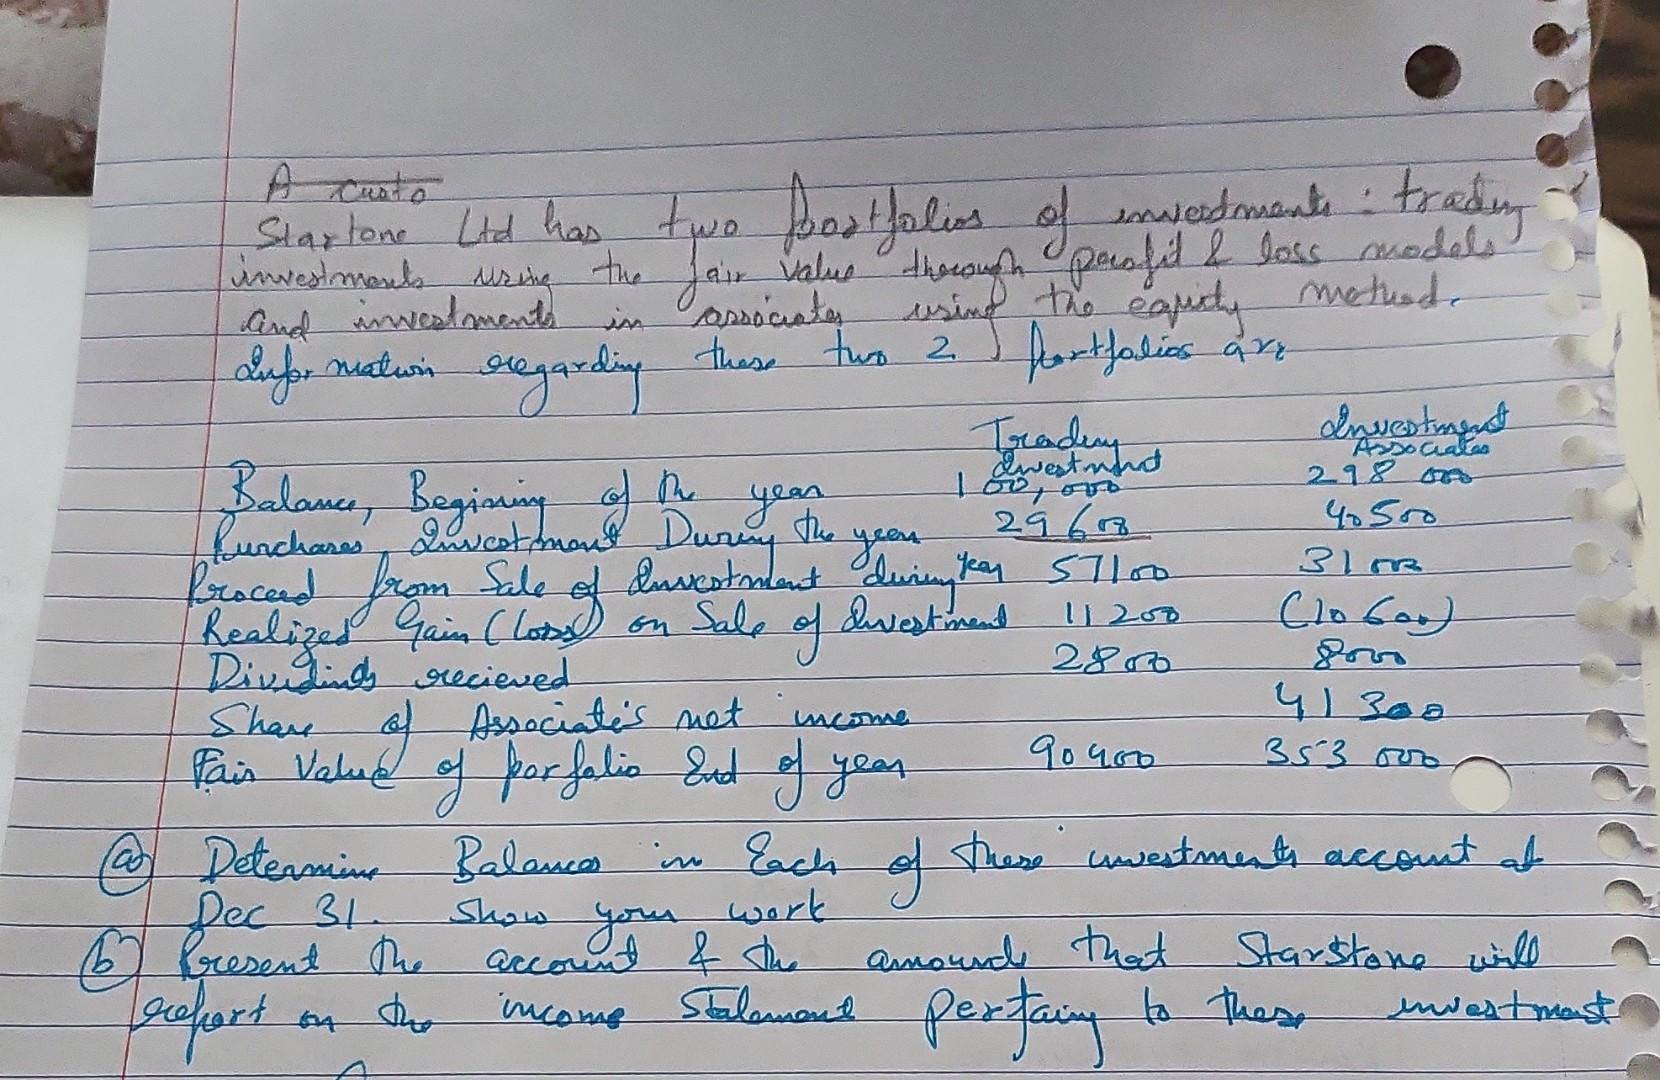 A custo
Starlone Ltd has two portfolios of investments : trading
investments using the fair value through profit & loss models
and investments in associates using the equity method.
Information regarding these two 2 portfolios are
Trading Investment
Investment Associates
Balance, Begining of the year 100,000 298 000
Purchases, Investment During the year 29 600 40500
Proceed from Sale of Investment during year 57100 31000
Realized Gain (loss) on Sale of Investment 11200 (10600)
Dividinds recieved 2800 8000
Share of Associate's net income 41300
Fair Value of porfolio End of year 90400 353 000
(a) Determine Balances in Each of these investments account at
Dec 31. Show your work
(b) Present the account & the amounts that StarStone will
report on the income Statement pertaing to these investment